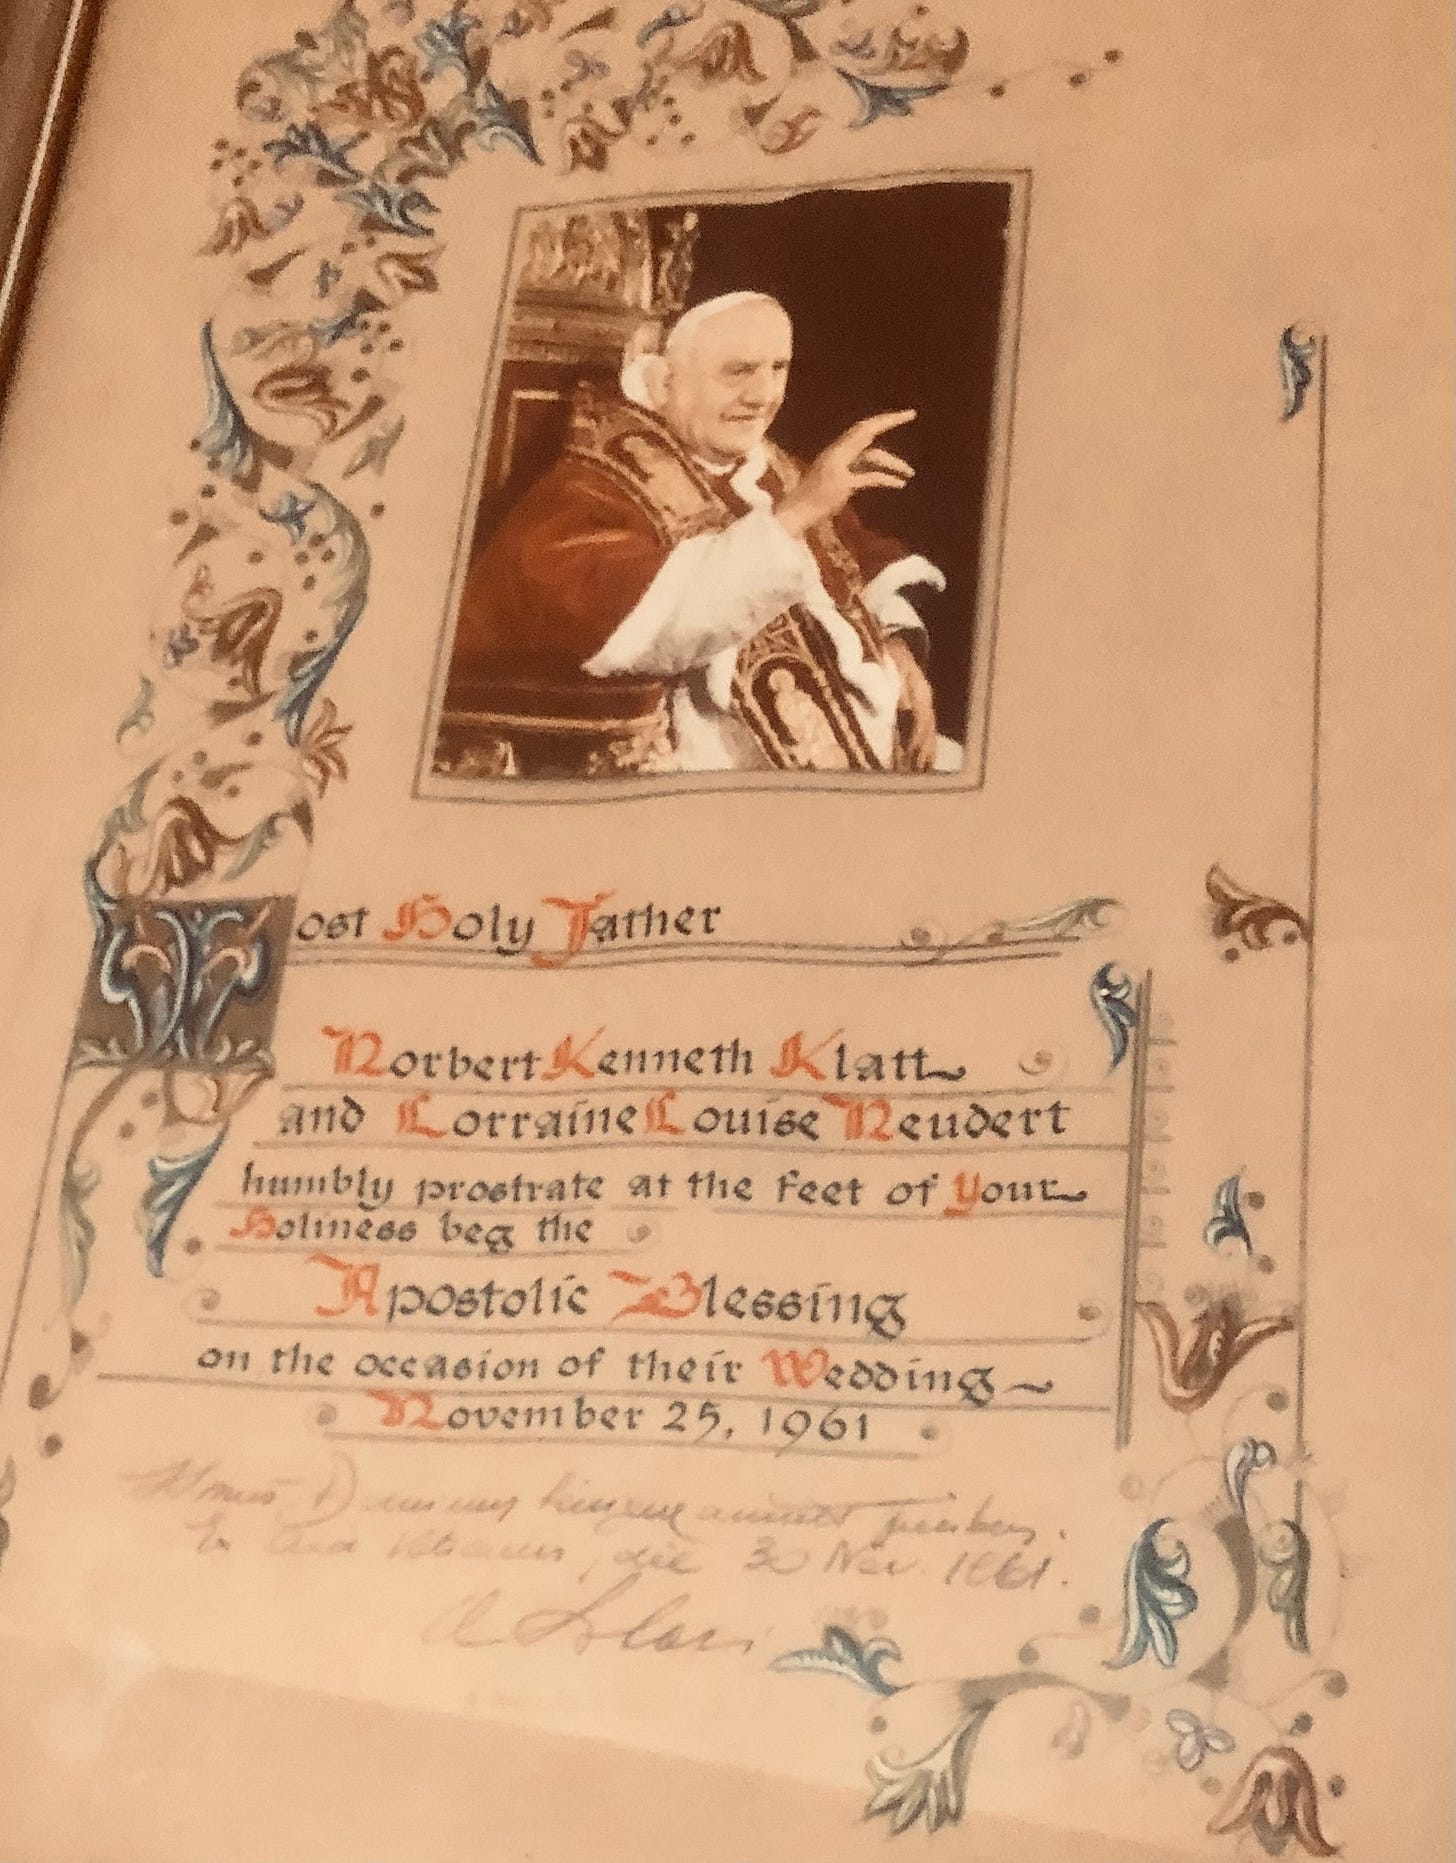 Most Holy Father
Norbert Kenneth Klatt
and Lorraine Louise Neudert
humbly prostrate at the feet of Your
Holiness beg the
Apostolic Blessing
on the occasion of their Wedding
November 25, 1961
die 30 Nov. 1961.